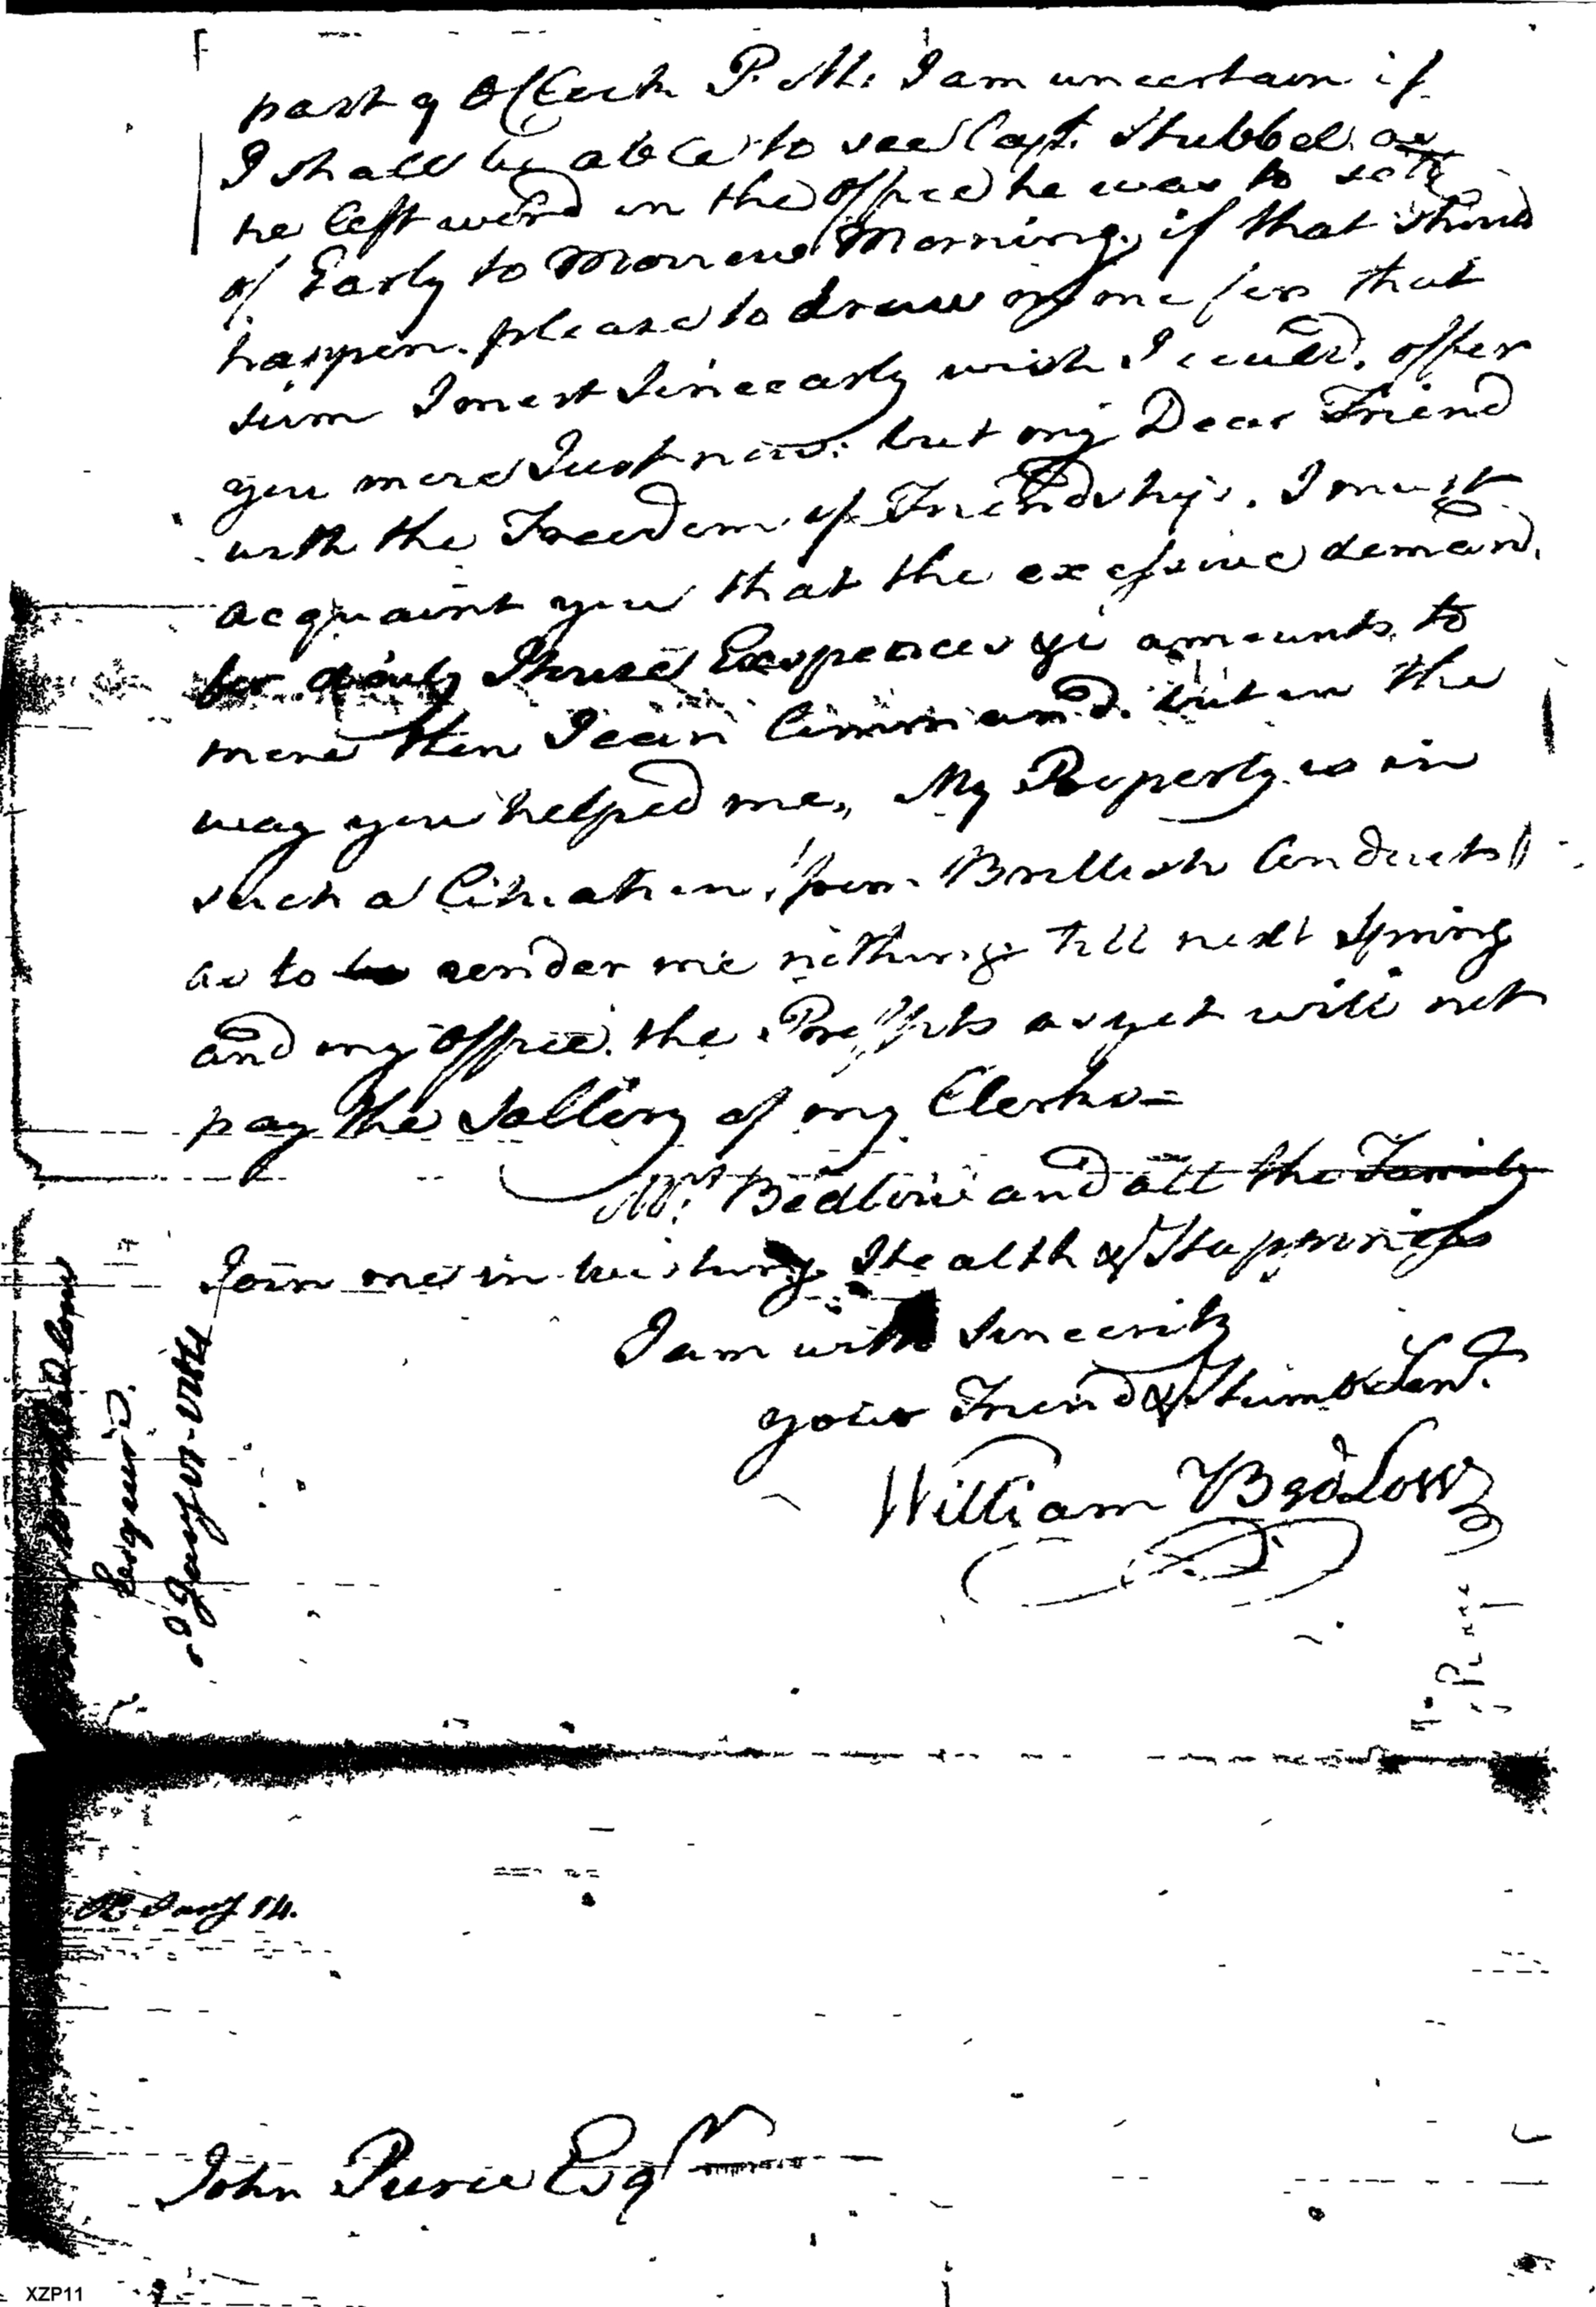 past 9 oClock P.M. I am uncertain if
I shall be able to see Capt. Stubbel as
he left word in the office he was to sett
of Early to Morrow Morning, if that should
happen. please to draw on me for that
sum I most Sincearly wish I could, offer
you more Just now: but my Dear Friend
with the Freedom of Friendship, I must
acquaint you that the excessive demand,
for daily House Expences &c amounts to
more then I can Command. but in the
way you helped me, My Property is in
such a Cituation, from Brittish Conducts
as to render me nothing till next Spring
and my office. the Proffits as yet will not
pay the Sallery of my Clerks=
Mrs Bedlow and all the Family
Join me in wishing Health & Happiness
I am with Sincerity
your Friend & Humbe Servt.
William Bedlow
John Pierce Esqr
XZP11